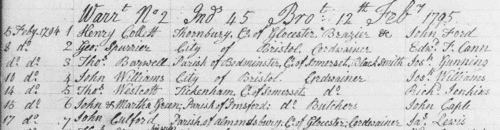 Warrt. No 2 Ind 45 Brot. 12th Feby 1795
5 Feby. 1794 1 Henry Collett Thornbury, C. of Glocester Brazier & John Ford
8 do. 2 Geo. Spurrier City of Bristol Cordwainer Edwd. T. Cann
do do. 3 Thos. Barwell Parish of Bedminster, C. of Somerset, Black Smith Jos. Gunning
10 do. 4 John Williams City of Bristol Cordwainer Jos. Williams
14 do 5 Thos. Westcott Tickenham, C. of Somerset do Richd. Jenkins
16 do 6 John & Martha Green; Parish of do. Butchers John Caple
17 do. 7 John Parish of Almondsbury, C. of Glocester; Cordwainer Jas. Lewis